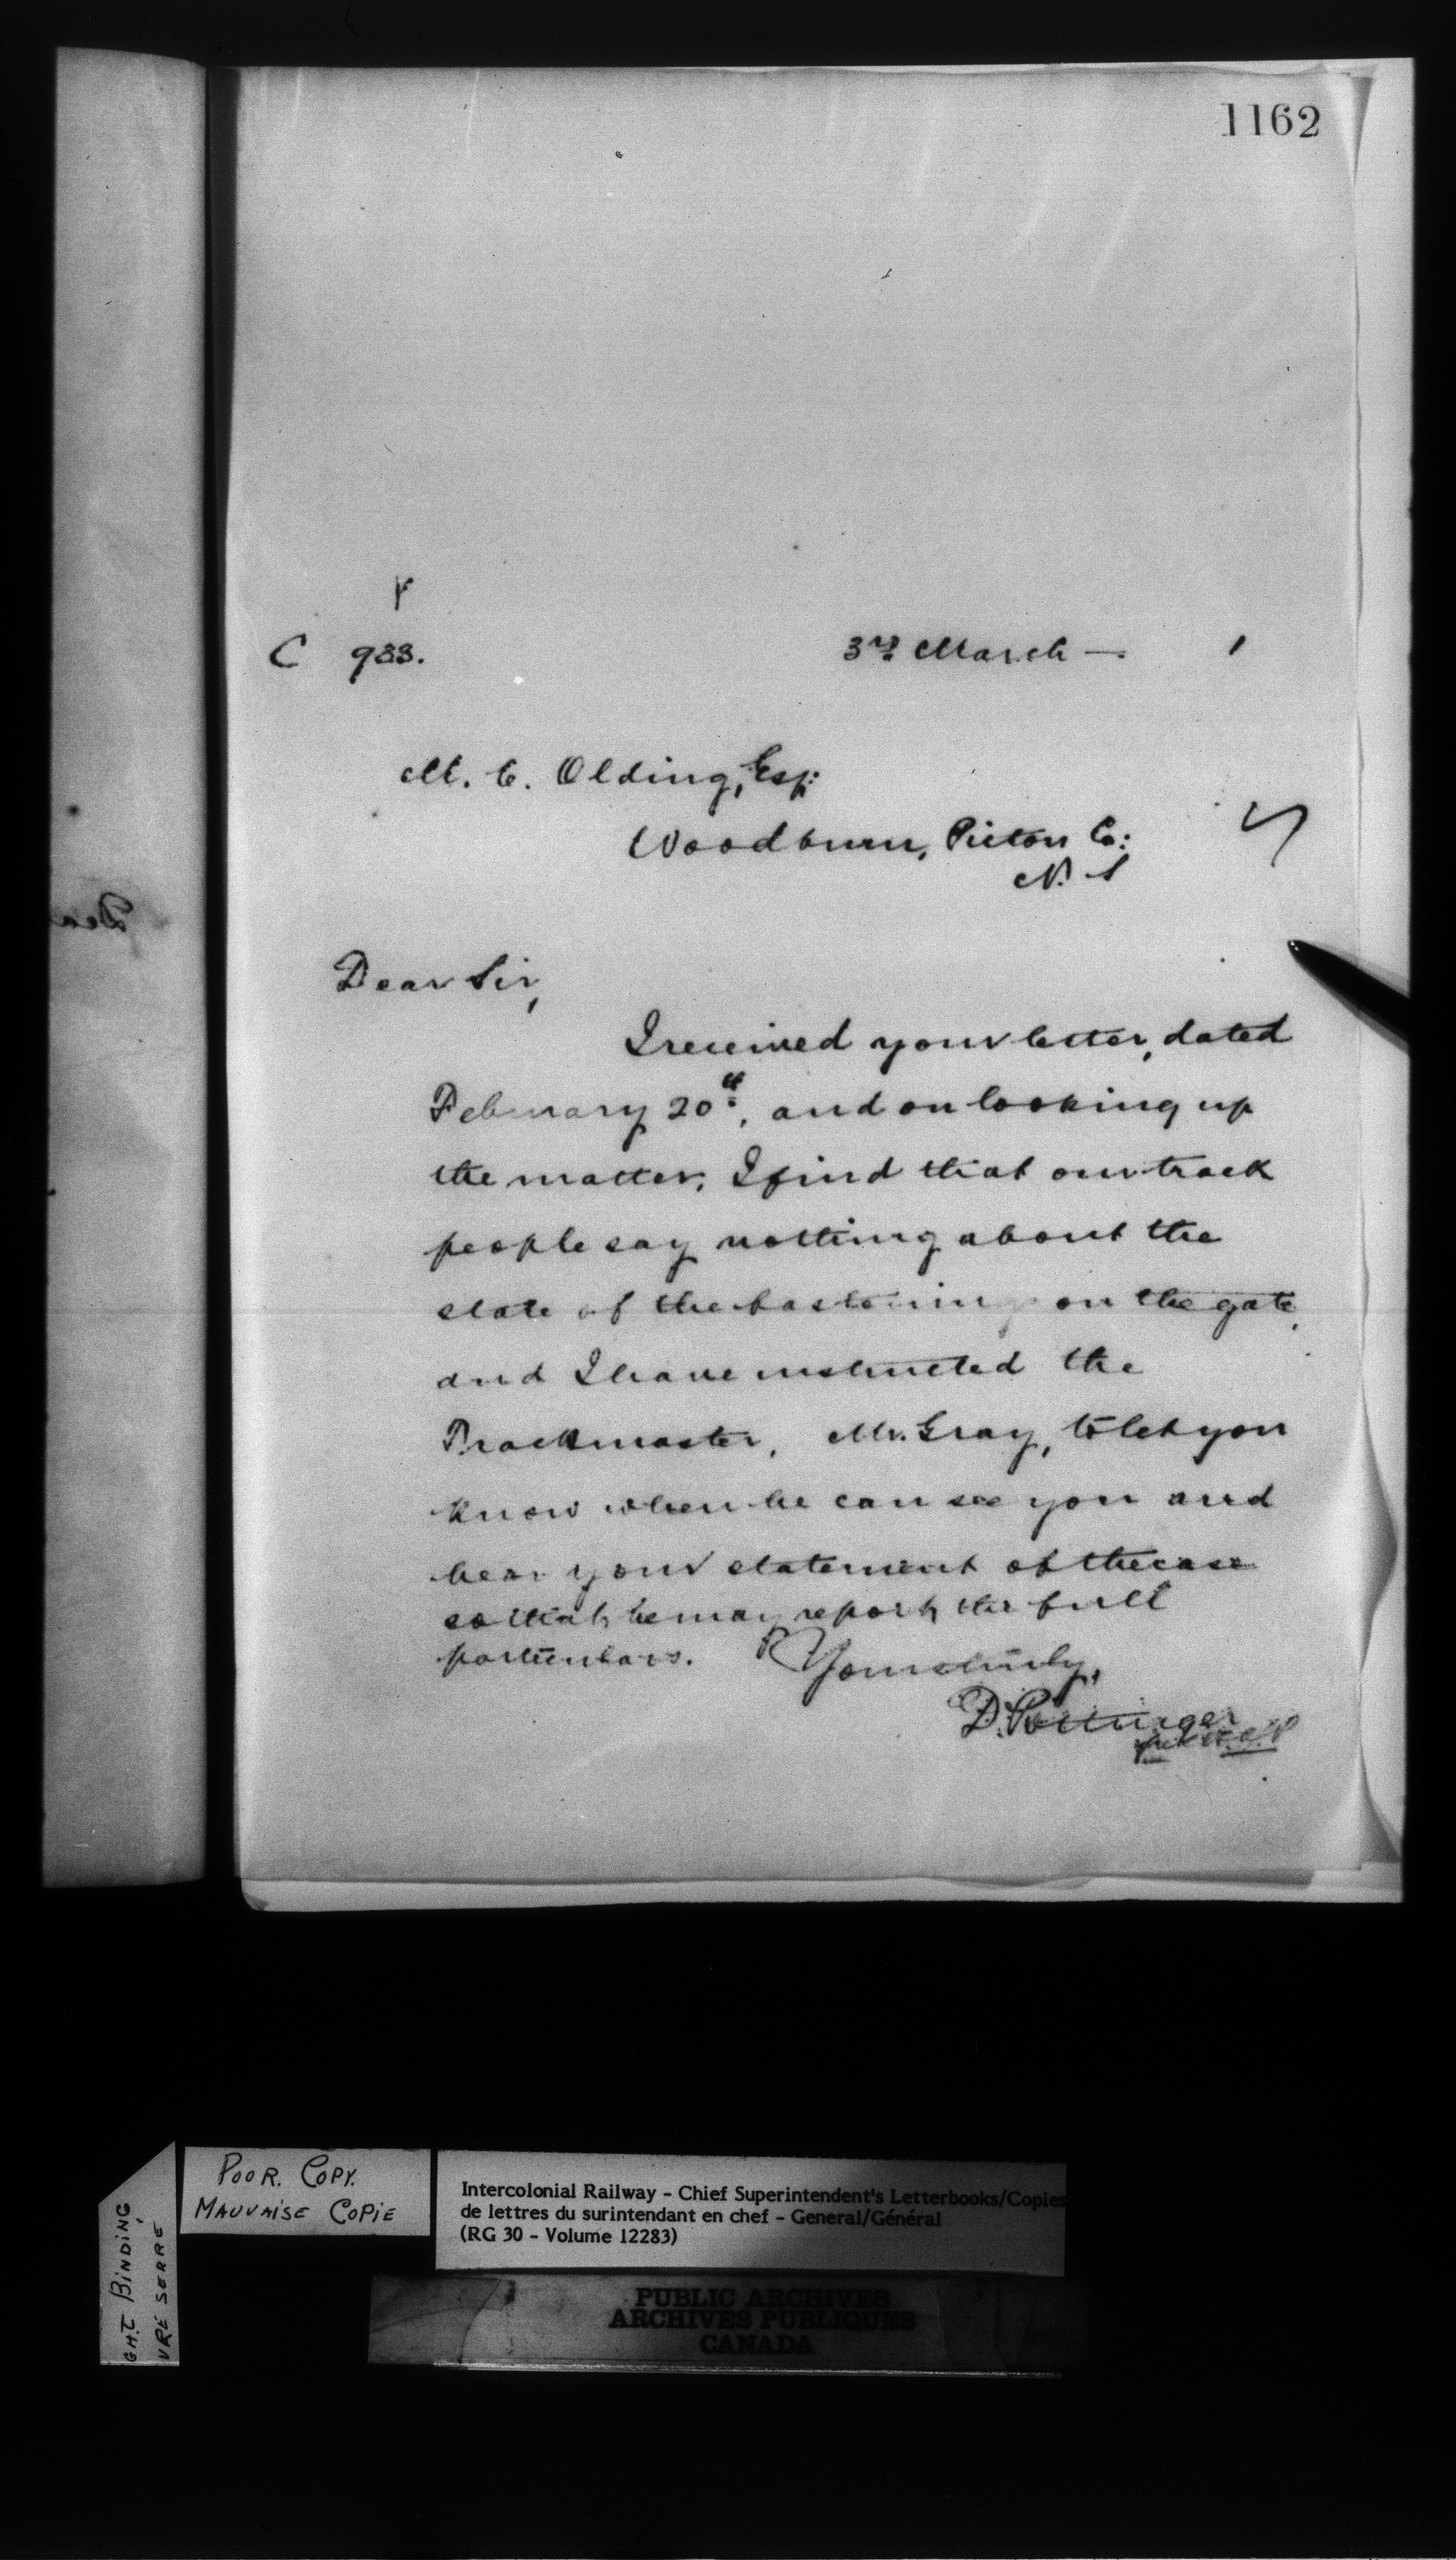 1162
C 933.
3rd March —. 1
M. C. Olding, Esq:
Woodburn, Pictou Co:
N. S
Dear Sir,
I received your letter, dated
February 20th, and on looking up
the matter, I find that our track
people say nothing about the
state of the fastening on the gate,
and I have instructed the
Trackmaster, Mr. Gray, to let you
know when he can see you and
hear your statement of the case
so that he may report the full
particulars. Yours truly,
D. Pottinger
POOR. COPY.
MAUVAISE COPIE
GHT BINDING
VRE SERRE
Intercolonial Railway - Chief Superintendent's Letterbooks/Copies
de lettres du surintendant en chef - General/Général
(RG 30 - Volume 12283)
PUBLIC ARCHIVES
ARCHIVES PUBLIQUES
CANADA